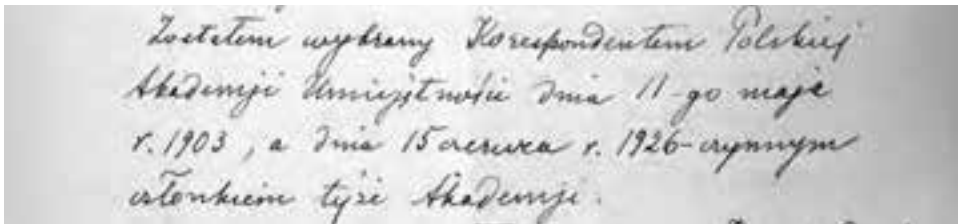 Zostałem wybrany Korespondentem Polskiej
Akademji Umiejętności dnia 11-go maja
r. 1903, a dnia 15 czerwca r. 1926 - czynnym
członkiem tejże Akademji.